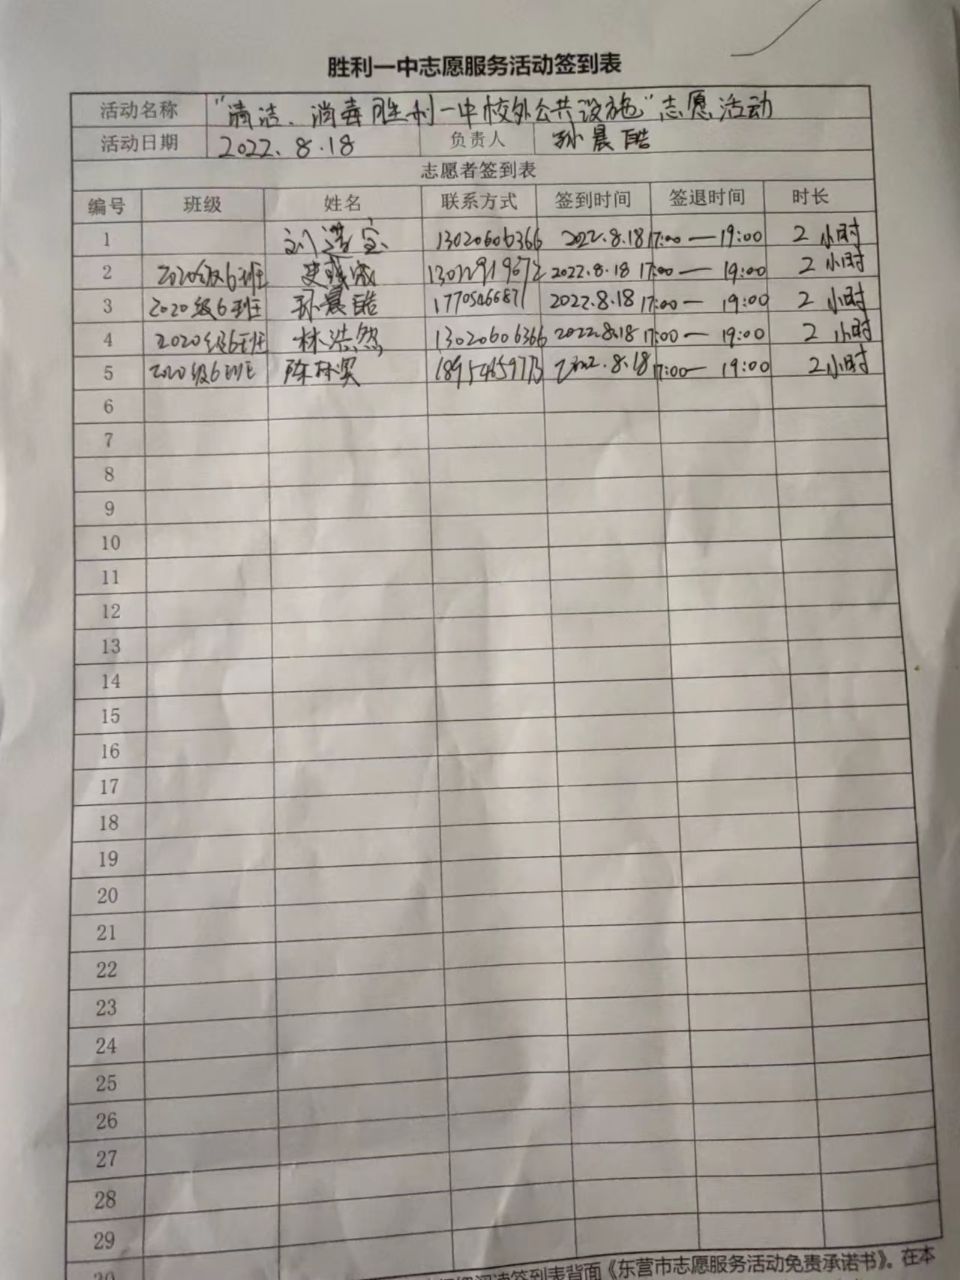 胜利一中志愿服务活动签到表
活动名称 "清洁、消毒胜利一中校外公共设施"志愿活动
活动日期 2022.8.18 负责人 孙晨皓
志愿者签到表
编号 班级 姓名 联系方式 签到时间 签退时间 时长
1 13020606366 2022.8.18 17:00 — 19:00 2小时
2 2020级6班 2022.8.18 17:00 — 19:00 2小时
3 2020级6班 孙晨皓 2022.8.18 17:00 — 19:00 2小时
4 2020级6班 林浩然 13020606366 2022.8.18 17:00 — 19:00 2小时
5 2020级6班 2022.8.18 17:00 — 19:00 2小时
6
7
8
9
10
11
12
13
14
15
16
17
18
19
20
21
22
23
24
25
26
27
28
29
阅读签到表背面《东营市志愿服务活动免责承诺书》。在本